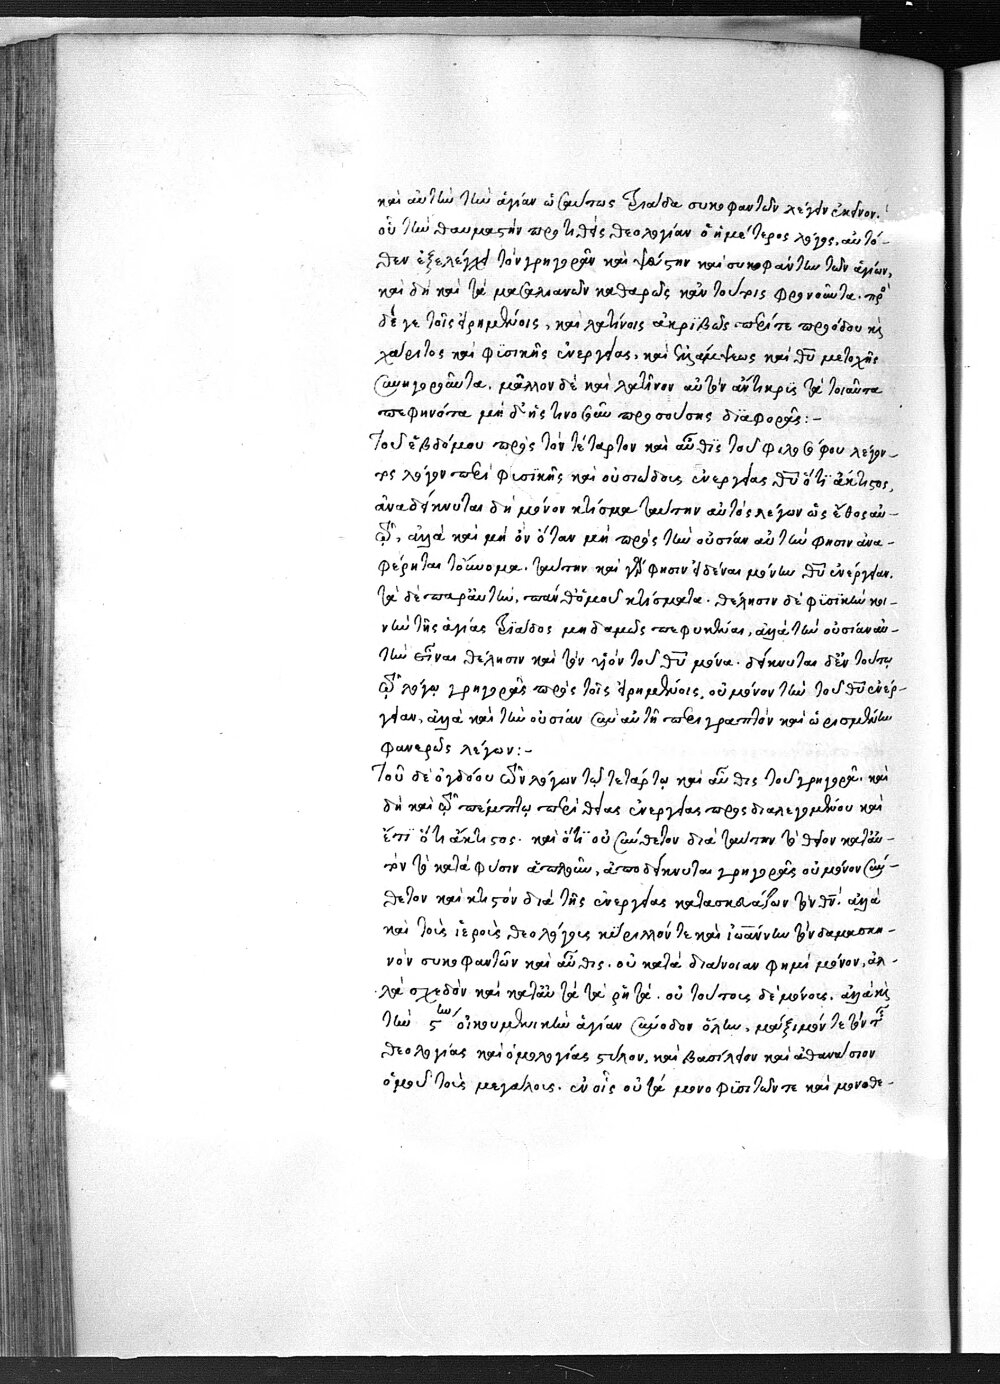 καὶ αὐτῶν τῶν ἁγίων ὡσαύτως συκοφαντῶν λέγειν ἐκεῖνον.
οὗ τὴν θαυμαστὴν πρὸς τῆς θεολογίαν ὁ ἡμέτερος λόγος, αὐτό-
θεν ἐξελέγχει τὸν γρηγορᾶν καὶ ψεύστην καὶ συκοφάντην τῶν ἁγίων,
καὶ δὴ καὶ τὰ μασαλιανῶν καθαρῶς κἀν τούτοις φρονοῦντα. πρὸ
δέ γε τοῖς εἰρημένοις, καὶ λατίνοις ἀκριβῶς περί τε προόδου καὶ
χάριτος καὶ φϋσικῆς ἐνεργείας, καὶ ἐλλάμψεως καὶ θυ μετοχῆς
συνηγοροῦντα. μᾶλλον δὲ καὶ λατῖνον αὐτὸν ἄντικρϋς τὰ τοιαῦτα
πεφηνότα μὴ δ' ἧς τινοσοῦν προσούσης διαφορᾶς:-
Τοῦ ἑβδόμου πρὸς τὸν τέταρτον καὶ αὖθϊς τοῦ φιλοσόφου λέγον-
τος λόγον περὶ φϋσϊκῆς καὶ οὐσιώδους ἐνεργείας θυ ὅτϊ ἄκτιστος,
ἀναδείκνυται δὴ μόνον κτίσμα ταύτην αὐτὸς λέγων ὡς ἔθος αὐ-
τῷ, ἀλλὰ καὶ μὴ ὂν ὅταν μὴ πρὸς τὴν οὐσίαν αὐτὴν φησὶν ἀνα-
φέρηται τὄνομα. ταύτην καὶ γὰρ φησὶν εἰδέναι μόνην θυ ἐνέργειαν.
τὰ δὲ παρ' αὐτὴν, πάνθ' ὁμοῦ κτίσματα. θέλησιν δὲ φϋσϊκὴν κοι-
νὴν τῆς ἁγίας μηδαμῶς πεφυκέναι, ἀλλὰ τὴν οὐσίαν αὐ-
τὴν εἶναι θέλησιν καὶ τὸν υἱὸν τοῦ θυ μόνα. δείκνυται δ' ἐν τούτῳ
τῷ λόγῳ γρηγορᾶς πρὸς τοῖς εἰρημένοις, οὐ μόνον τὴν τοῦ θυ ἐνέρ-
γειαν, ἀλλὰ καὶ τὴν οὐσίαν σὺν αὐτῇ περιγραπτὸν καὶ ὡρισμένην
φανερῶς λέγων:-
Τοῦ δὲ ὀγδόου τῶν λόγων τῷ τετάρτῳ καὶ αὖθις τοῦ γρηγορᾶ. καὶ
δὴ καὶ τῷ πέμπτῳ περὶ θείας ἐνεργείας προσδιαλεγομένου καὶ
ἔτϊ ὅτι ἄκτιστος. καὶ ὅτϊ οὐ σύνθετον διὰ ταύτην τὸ θεῖον κατ' αὐ-
τὸν τὸ κατὰ φύσιν ἁπλοῦν, ἀποδείκνυται γρηγορᾶς οὐ μόνον σύν-
θετον καὶ κτιστὸν διὰ τῆς ἐνεργείας κατασκευάζων τὸν θν. ἀλλὰ
καὶ τοῖς ἱεροῖς θεολόγοις κϋρίλλόν τε καὶ ἰωάννην τὸν δαμασκη-
νὸν συκοφαντῶν καὶ αὖθις. οὐ κατὰ διάνοιαν φημὶ μόνον, ἀλ-
λὰ σχεδὸν καὶ κατ' αὐτὰ τὰ ῥητά. οὐ τούτοις δὲ μόνοις, ἀλλὰ καὶ
τὴν ϛην οἰκουμενικὴν ἁγίαν σύνοδον ὅλην, μάξιμόν τε τὸν τῆς
θεολογίας καὶ ὁμολογίας στῦλον, καὶ βασίλειον καὶ ἀθανάσιον
ὁμοῦ τοῖς μεγάλοις. ἐν οἷς οὐ τὰ μονοφϋσιτῶν τε καὶ μονοθε-